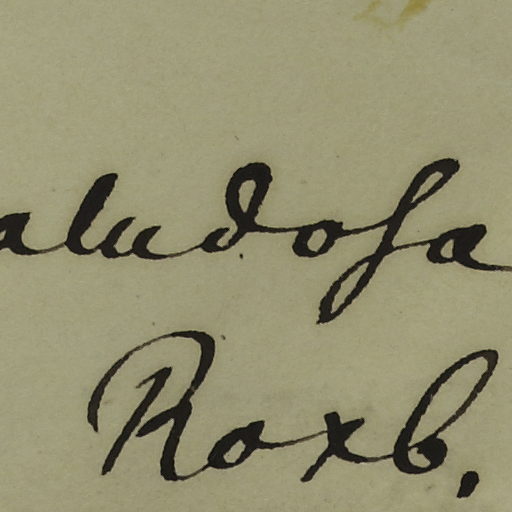 aludosa
Roxb.